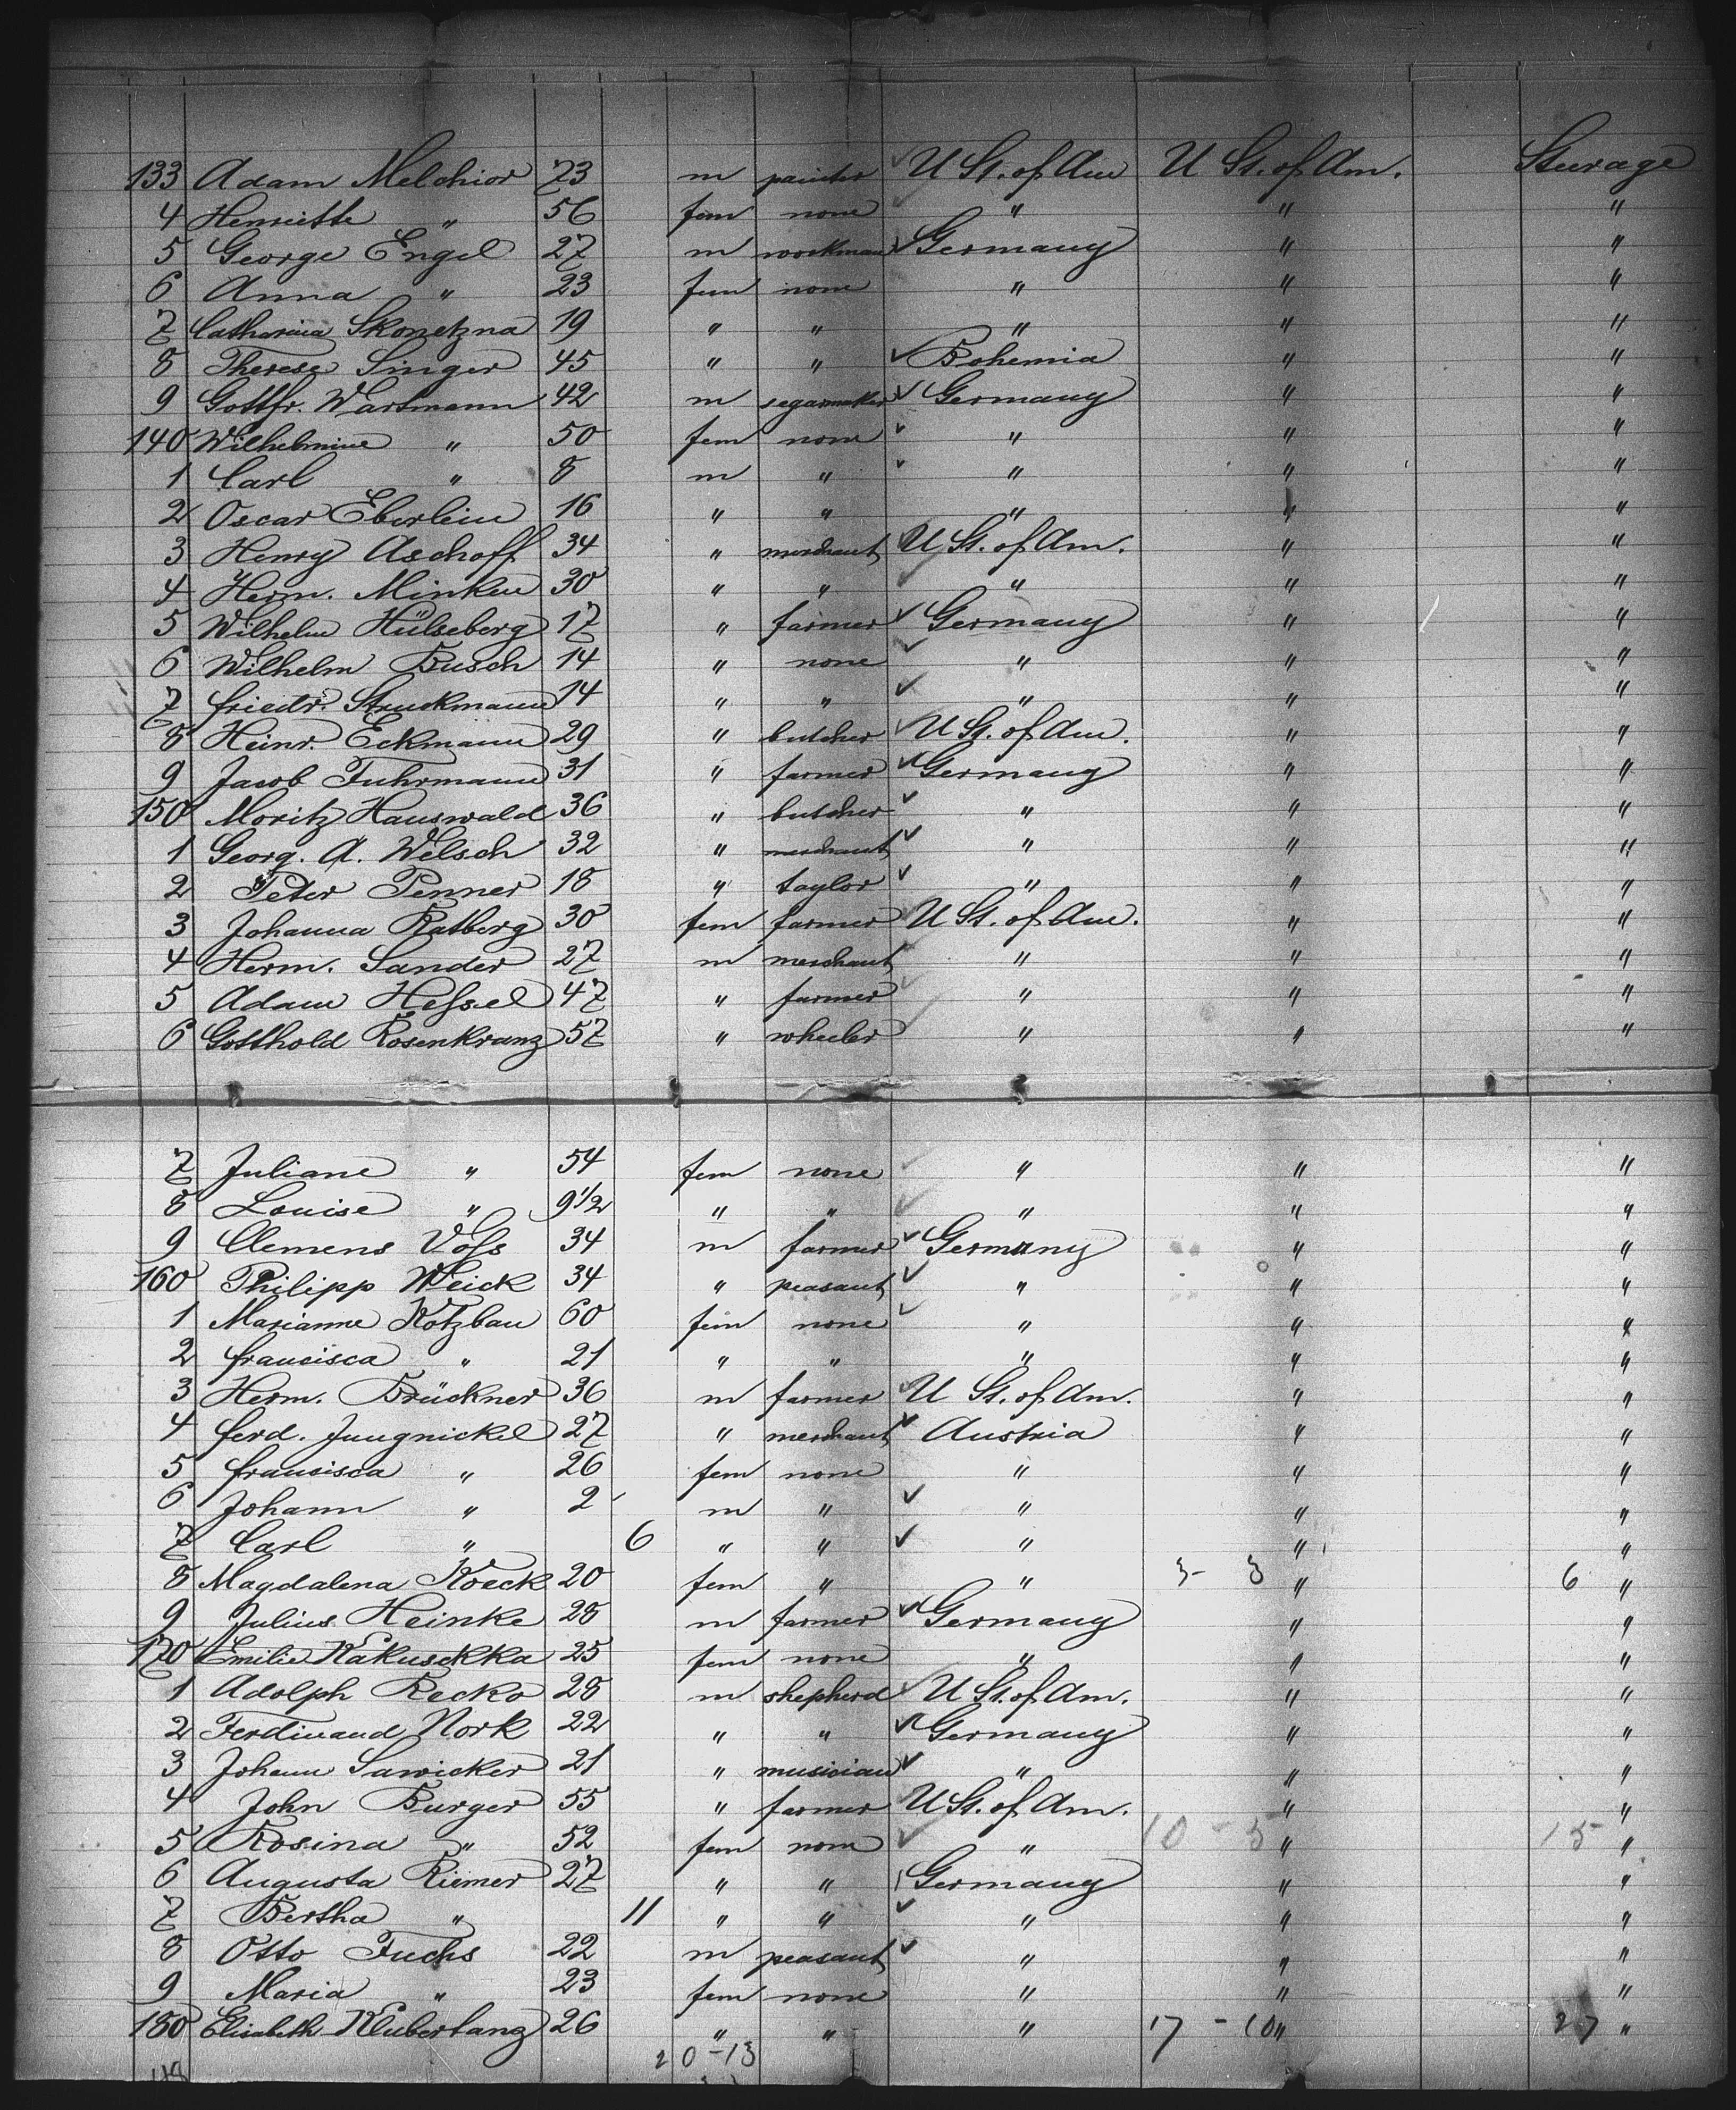 133 Adam Melchior 73 m painter U St. of Am U St. of Am. Steerage
4 Henriette " 56 fem none " " "
5 George Engel 27 m workman Germany " "
6 Anna " 23 fem none " " "
7 Catharina Skonetzna 19 " " " " "
8 Therese Singer 45 " " Bohemia " "
9 Gottfr. Wartmann 42 m segarmaker Germany " "
140 Wilhelmine " 50 fem none " " "
1 Carl " 8 m " " " "
2 Oscar Eberlein 16 " " " " "
3 Henry Aschoff 34 " merchant U St. of Am. " "
4 Herm. Minken 30 " " " " "
5 Wilhelm Hülseberg 17 " farmer Germany " "
6 Wilhelm Busch 14 " none " " "
7 Friedr. Struckmann 14 " " " " "
8 Heinr. Eckmann 29 " butcher U St. of Am. " "
9 Jacob Fuhrmann 31 " farmer Germany " "
150 Moritz Hauswald 36 " butcher " " "
1 Georg. A. Welsch 32 " merchant " " "
2 Peter Penner 18 " taylor " " "
3 Johanna Ratberg 30 fem farmer U St. of Am. " "
4 Herm. Sander 27 m merchant " " "
5 Adam Hessel 47 " farmer " " "
6 Gotthold Rosenkranz 57 " wheeler " " "
7 Juliane " 54 fem none " " "
8 Louise " 9 1/2 " " " " "
9 Clemens Voss 34 m farmer Germany " "
160 Philipp Weick 34 " peasant " " "
1 Marianne Kotzbau 60 fem none " " "
2 Francisca " 21 " " " " "
3 Herm. Brückner 36 m farmer U St. of Am. " "
4 Ferd. Jungnickel 27 " merchant Austria " "
5 Francisca " 26 fem none " " "
6 Johann " 2 m " " " "
7 Carl " 6 " " " " "
8 Magdalena Koeck 20 fem " " 3- 3 " 6 "
9 Julius Heinke 28 m farmer Germany " "
170 Emilie Kakuschka 25 fem none " " "
1 Adolph Recko 28 m shepherd U St. of Am. " "
2 Ferdinand Nork 22 " " Germany " "
3 Johann Sawicker 21 " musician " " "
4 John Burger 55 " farmer U St. of Am. " "
5 Rosina " 52 fem none " 10 - 5 " 15 "
6 Augusta Riemer 27 " " Germany " "
7 Bertha " 11 " " " " "
8 Otto Fuchs 22 m peasant " " "
9 Maria " 23 fem none " " "
180 Elisabeth Kluberlanz 26 " " " 17 - 10 " 27 "
20-13